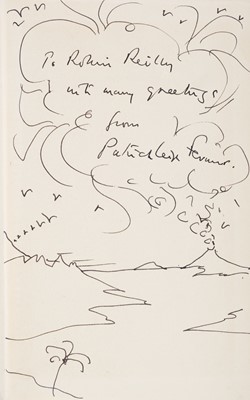 To Robin Reilly
with many greetings
from
Patrick Leigh Fermor.